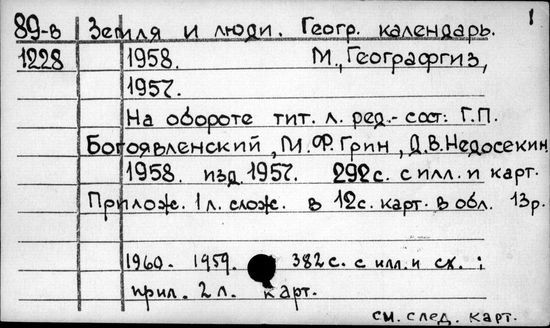 89-в Земля и люди. Геогр. календарь. 1
1228 1958. М., Географгиз,
1957.
На обороте тит. л. ред.-сост: Г.П.
Богоявленский, М.Ф. Грин, Д.В. Недосекин
1958. изд. 1957. 292 с. с илл. и карт.
Прилож. 1 л. слож. в 12 с. карт. в обл. 13р.
1960. 1959. 382 с. с илл. и сх. ;
прил. 2 л. карт.
см. след. карт.